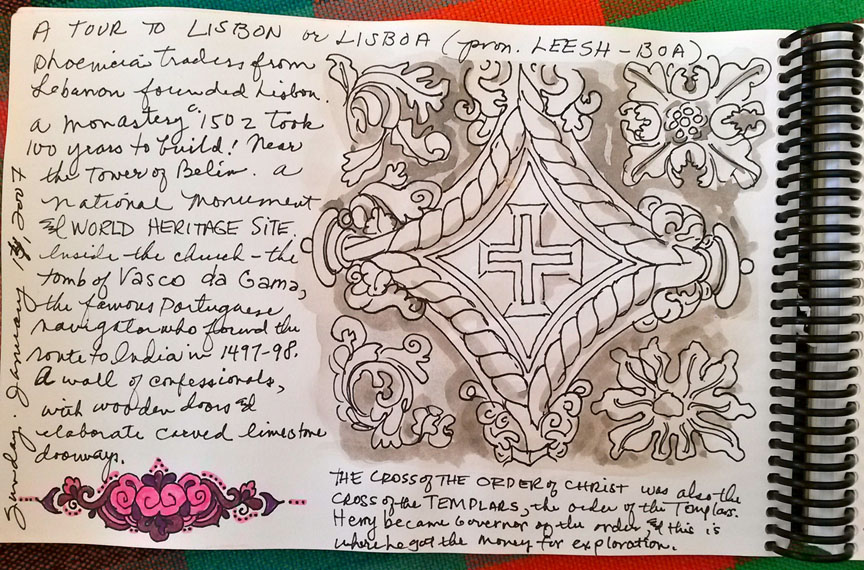 A TOUR TO LISBON or LISBOA (pron. LEESH-BOA)
Phoenician traders from
Lebanon founded Lisbon.
a monastery c. 1502 took
100 years to build! Near
the Tower of Belém. a
national Monument
& WORLD HERITAGE SITE.
Inside the church - the
tomb of Vasco da Gama,
the famous Portuguese
navigator who found the
route to India in 1497-98.
A wall of confessionals,
with wooden doors &
elaborate carved limestone
doorways.
Sunday. January , 2007
THE CROSS of THE ORDER of CHRIST was also the
CROSS of the TEMPLARS, the order of the Templars.
Henry became Governor of the order, & this is
where he got the money for exploration.